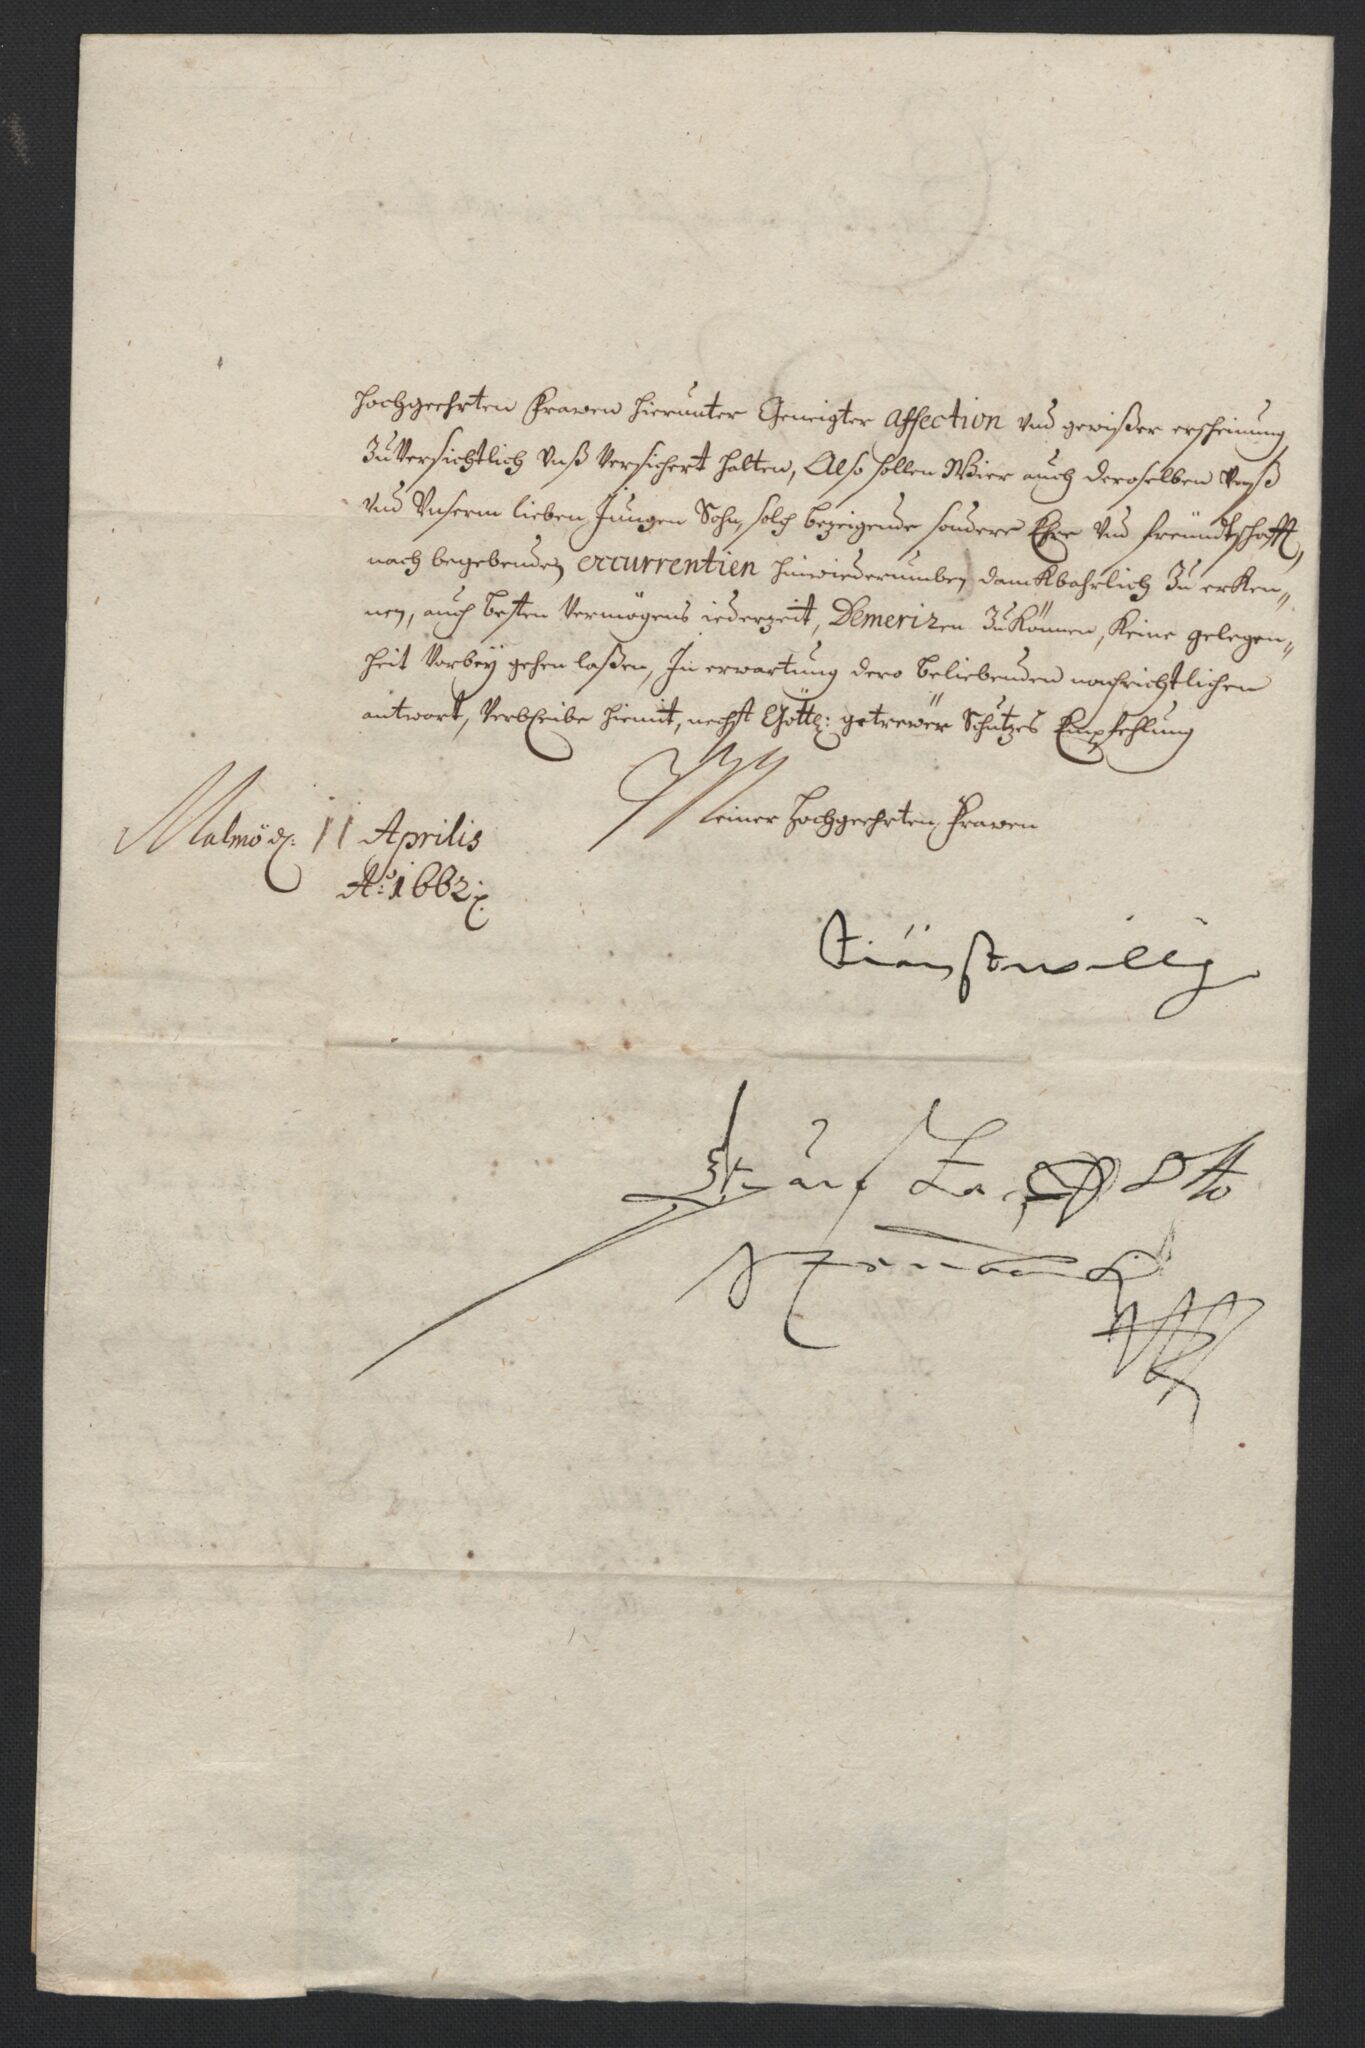 hochgeehrten Frawen hierunter Geneigter affection vnd gewißer erscheinung
zuversichtlich vnß versichert halten, Also sollen Wier auch deroselben vnß
vnd Vnserm lieben Jungen Sohn, solch bezeigende sondere Ehre vnd freündtschafft,
nach begebenden occurrentien hinwiederumben danckbahrlich zu erken„
nen, auch besten Vermögens iederzeit, Demerizen zu können, keine gelegen„
heit Vorbeÿ gehen laßen, In erwartung dero beliebenden nachrichtlichen
antwort, Verbleibe hiemit, nechst Göttl: getrewer Schutzes Empfehlung
Meiner Hochgeehrten Frawen
Malmö d. 11 Aprilis
Ao: 1662
dienstwillig
Otto